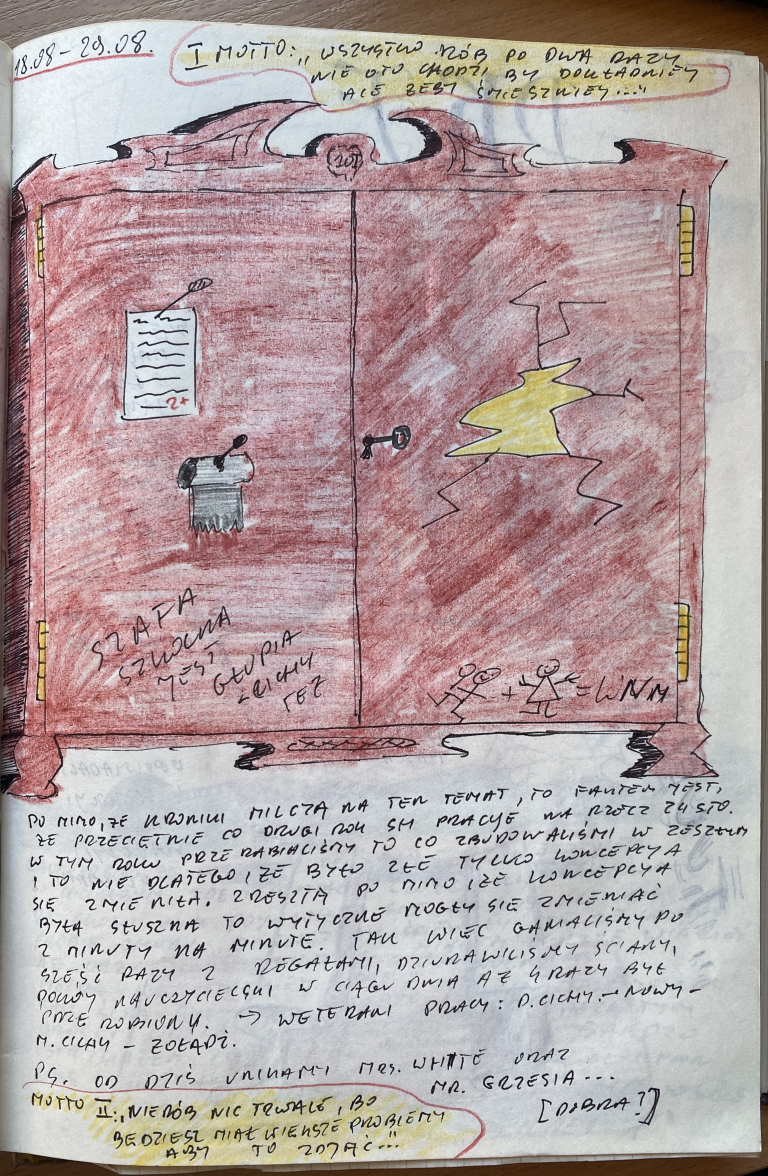 18.08 – 29.08.
I MOTTO: „WSZYSTKO RÓB PO DWA RAZY
NIE OTO CHODZI BY DOKŁADNIEY
ALE ŻEBY ŚMIESZNIEY..."
20
2+
SZAFA
SZKOLNA
JEST
GŁUPIA
CICHY
TEŻ
+ = WiNM
PO MIMO, ŻE KRONIKI MILCZĄ NA TEN TEMAT, TO FAKTEM JEST,
ŻE PRZECIĘTNIE CO DRUGI ROK SH PRACUJE NA RZECZ ZHSTO.
W TYM ROKU PRZERABIALIŚMY TO CO ZBUDOWALIŚMY W ZESZŁYM
I TO NIE DLATEGO, IŻE BYŁO ZŁE TYLKO KONCEPCYA
SIĘ ZMIENIŁA. ZRESZTĄ PO MIMO IŻE KONCEPCYA
BYŁA SŁUSZNA TO WYTYCZNE MOGŁY SIĘ ZMIENIAĆ
Z MINUTY NA MINUTE. TAK WIEC GANIALIŚMY PO
SZEŚĆ RAZY Z REGAŁAMI, DZIURAWILIŚMY ŚCIANY,
POKÓY NAUCZYCIELSKI W CIĄGU DNIA AŻ 4 RAZY BYŁ
PRZEROBIONY. → WETERANI PRACY: D. CICHY. – NOWY –
M. CICHY – ŻOŁĄDŹ.
PS. OD DZIŚ UNIKAMY MRS. WHITE ORAZ
MR. GRZESIA...
[DOBRA?]
MOTTO II: „NIE RÓB NIC TRWALE, BO
BĘDZIESZ MIAŁ WIĘKSZE PROBLEMY
ABY TO ZDJĄĆ..."